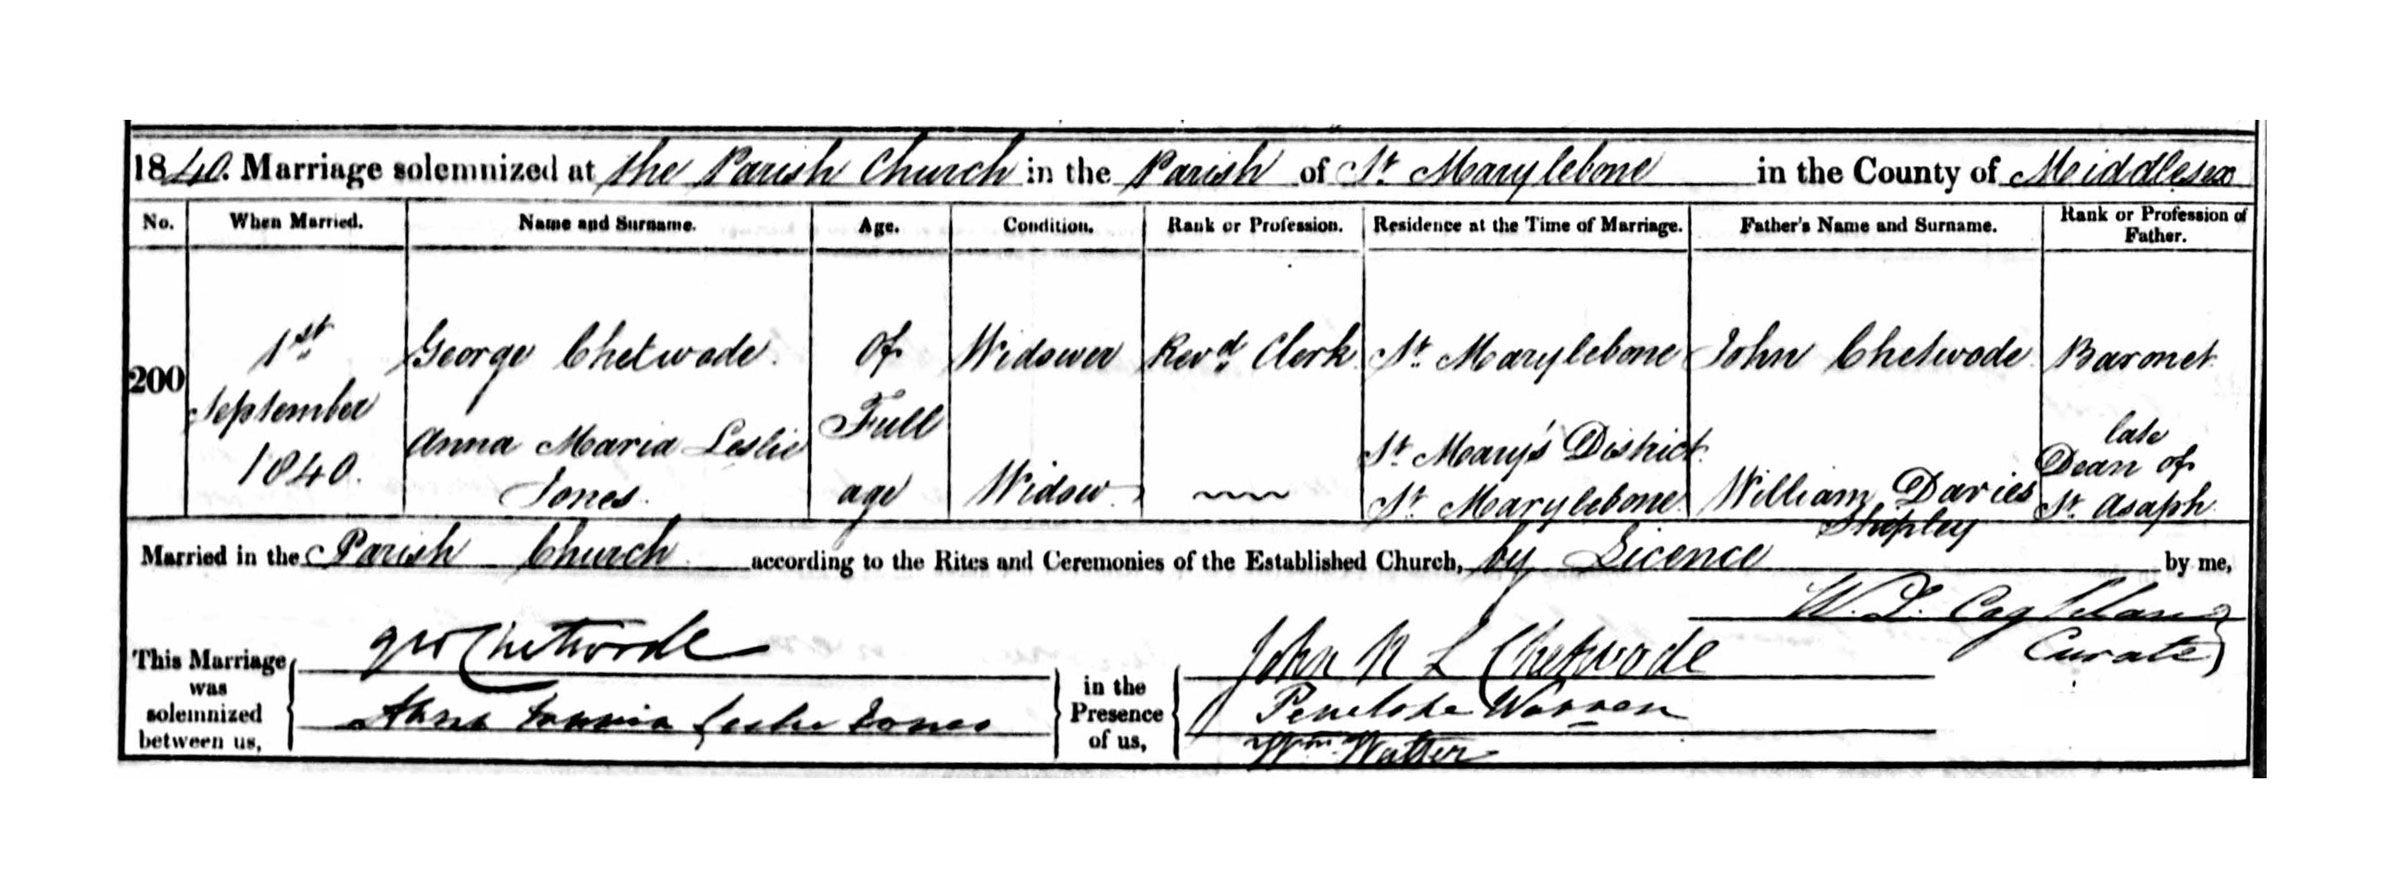 1840. Marriage solemnized at the Parish Church in the Parish of St Marylebone in the County of Middlesex
No. When Married. Name and Surname. Age. Condition. Rank or Profession. Residence at the Time of Marriage. Father's Name and Surname. Rank or Profession of Father.
200 1st September 1840. George Chetwode. Of Full age Widower Revd Clerk St Marylebone John Chetwode Baronet
Anna Maria Leslie Jones. Widow St Mary's District St Marylebone William Davies Shipley late Dean of St Asaph
Married in the Parish Church according to the Rites and Ceremonies of the Established Church, by Licence by me,
W. L. Curate
This Marriage was solemnized between us, Geo Chetwode
Anna Maria Leslie Jones
in the Presence of us, John N L Chetwode
Penelope Warren
Wm Walker